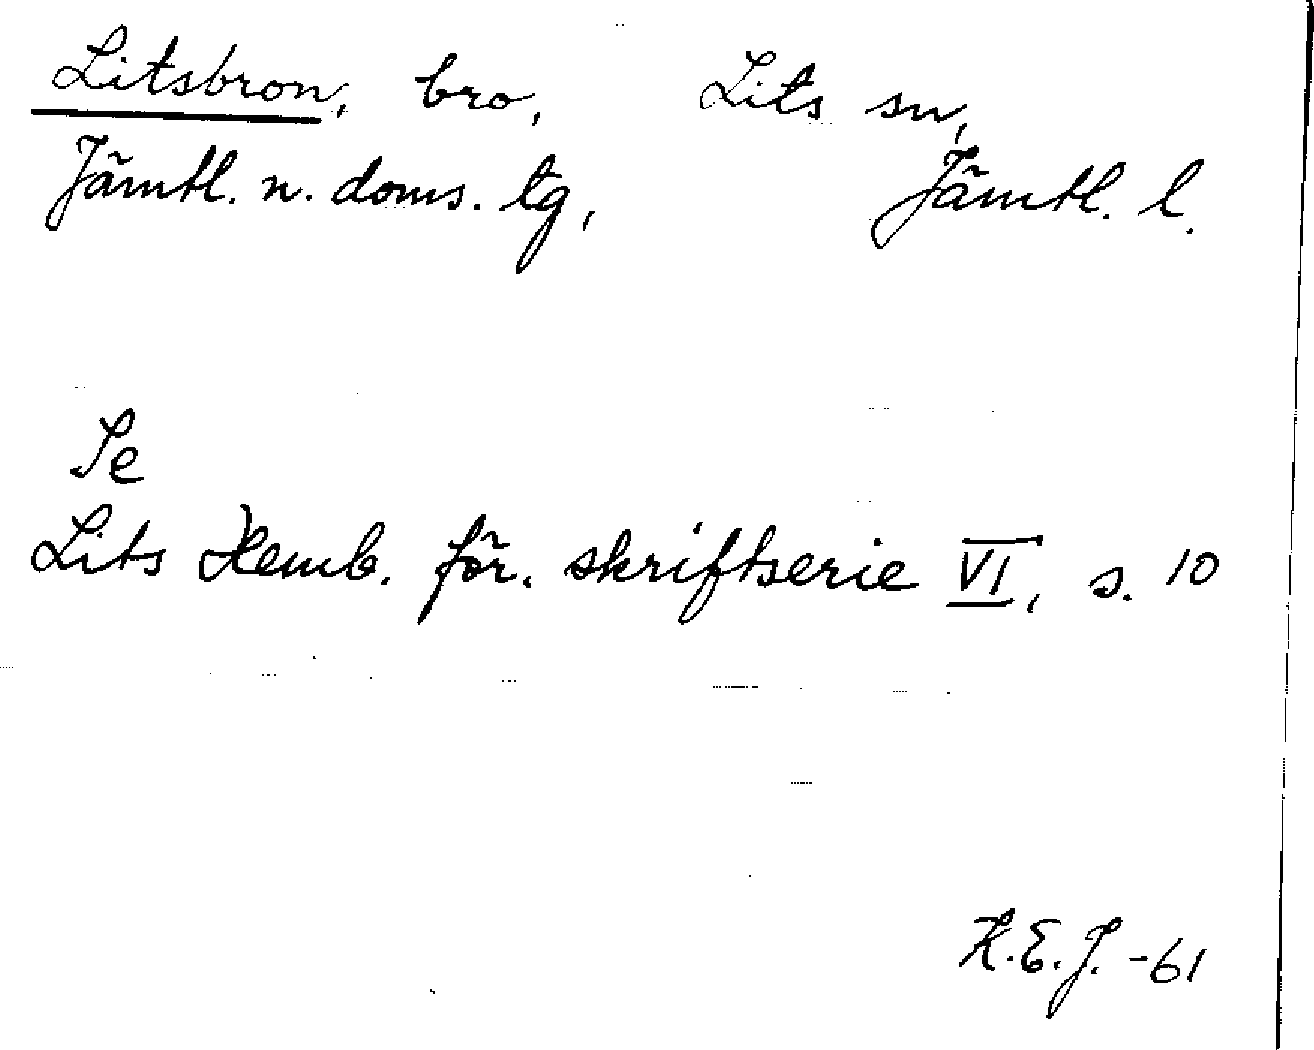 Litsbron, bro, Lits sn,
Jämtl. n. doms. tg, Jämtl. l.
Se
Lits Hemb. för. skriftserie VI, s. 10
K.E.J. -61